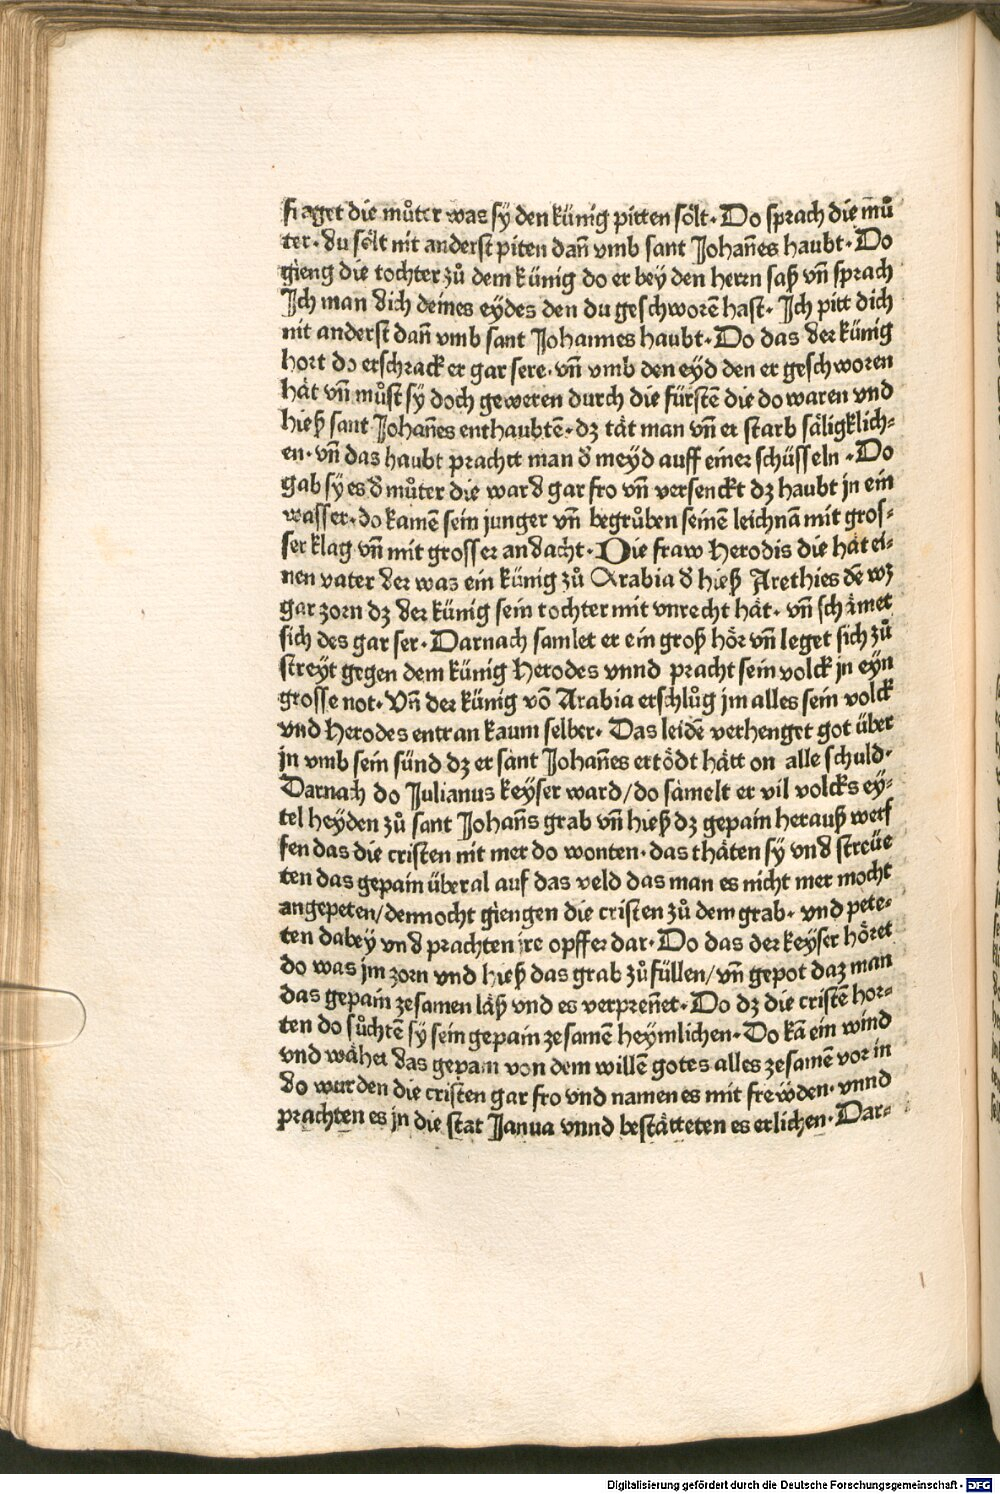 fraget die můter was sÿ den künig pitten sölt· Do sprach die mů
ter· du sölt nit anderst piten dañ vmb sant Johañes haubt· Do
gieng die tochter zů dem künig do er beÿ den herrn saß vñ sprach
Jch man dich deines eÿdes den du geschworẽ hast· Jch pitt dich
nit anderst dañ vmb sant Johannes haubt· Do das der künig
hort do erschrack er gar sere· vñ vmb den eÿd den er geschworen
hät vñ můst sÿ doch geweren durch die fürstẽ die do waren vnd
hieß sant Johañes enthaubtẽ· dz tät man vñ er starb säligklich⸗
en· vñ das haubt pracht man ď meÿd auff einer schüsseln· Do
gab sÿ es ď můter die ward gar fro vñ versenckt dz haubt jn ein
wasser· do kamẽ sein junger vñ begrůben seinẽ leichnã mit gros⸗
ser klag vñ mit grosser andacht· Die fraw Herodis die hät ei⸗
nen vater der was ein künig zů Arabia ď hieß Arethies dẽ wz
gar zorn dz der künig sein tochter mit vnrecht hät· vñ schämet
sich des gar ser· Darnach samlet er ein groß hör vñ leget sich zů
streÿt gegen dem künig Herodes vnnd pracht sein volck jn eÿn
grosse not· Vñ der künig võ Arabia erschlůg jm alles sein volck
vnd Herodes entran kaum selber· Das leidẽ verhenget got über
jn vmb sein sünd dz er sant Johañes ertödt hätt on alle schuld·
Darnach do Julianus keÿser ward/do samelt er vil volcks eÿ⸗
tel heÿden zů sant Johañs grab vñ hieß dz gepain herauß werf
fen das die cristen nit mer do wonten· das thäten sÿ vnd streüe
ten das gepain überal auf das veld das man es nicht mer mocht
angepeten/dennocht giengen die cristen zů dem grab· vnd pete⸗
ten dabeÿ vnd prachten jre opffer dar· Do das der keÿser höret
do was jm zorn vnd hieß das grab zů füllen/vñ gepot daz man
das gepain zesamen läß vnd es verpreñet· Do dz die cristẽ hor⸗
ten do sůchtẽ sÿ sein gepain zesamẽ heÿmlichen· Do kã ein wind
vnd wähet das gepain von dem willẽ gotes alles zesamẽ vor in
do wurden die cristen gar fro vnd namen es mit frewden· vnnd
prachten es jn die stat Janua vnnd bestätteten es erlichen· Dar⸗
Digitalisierung gefördert durch die Deutsche Forschungsgemeinschaft - DFG